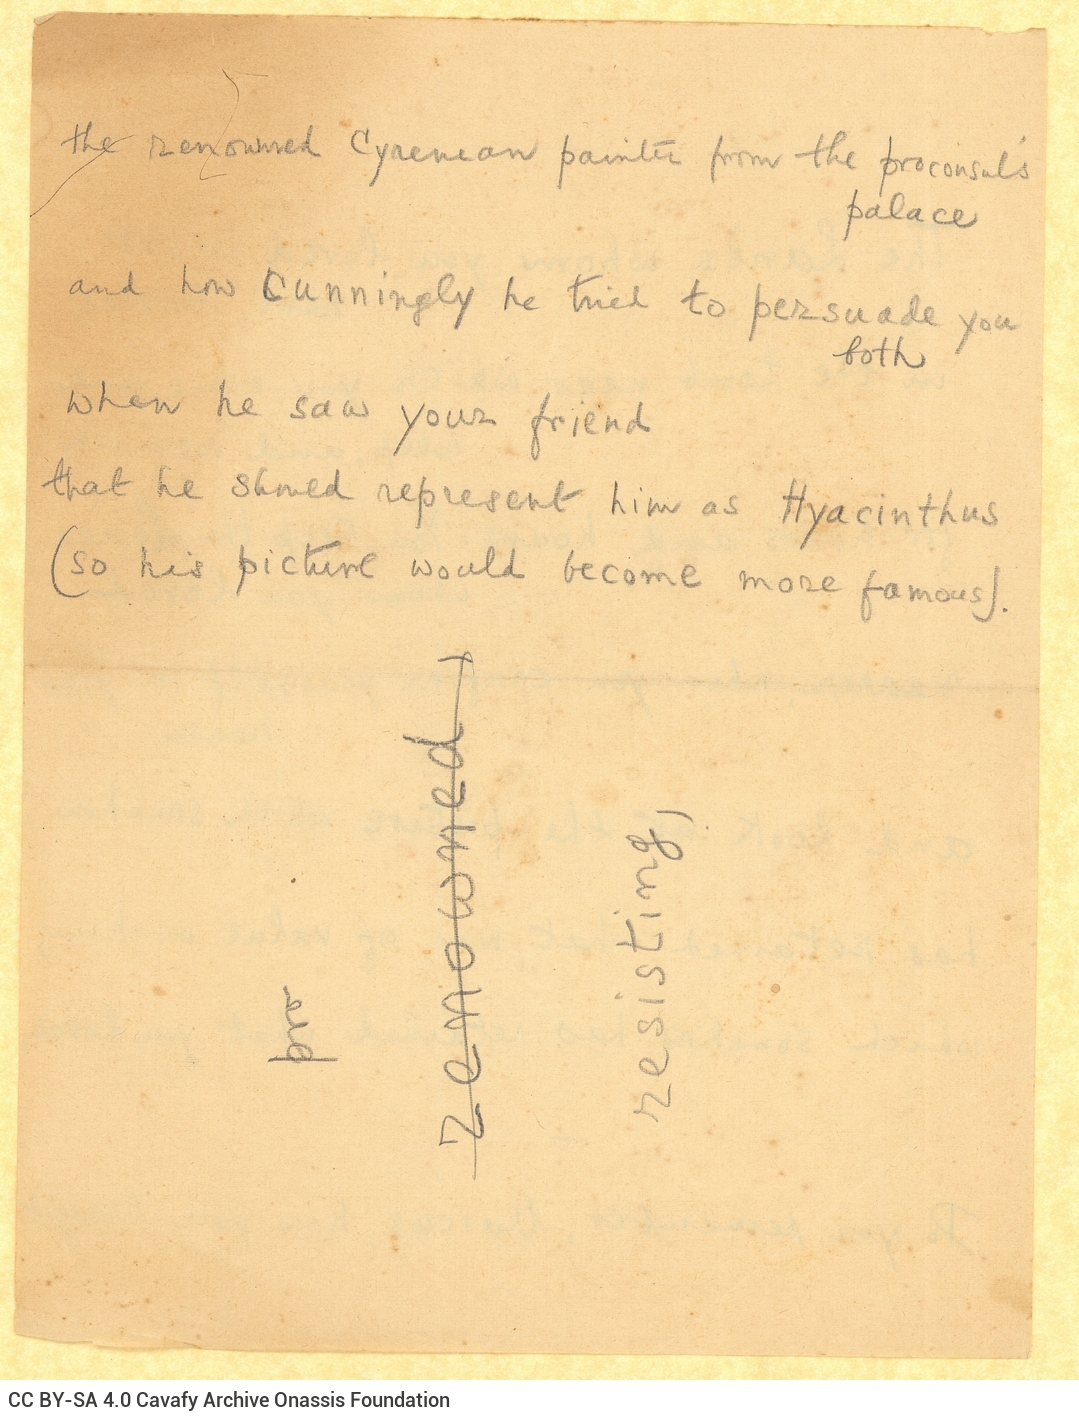 the renowned Cyrenean painter from the proconsul's
palace
and how Cunningly he tried to persuade you
both
when he saw your friend
that he shoued represent him as Hyacinthus
(so his picture would become more famous).
renowned
resisting,
CC BY-SA 4.0 Cavafy Archive Onassis Foundation